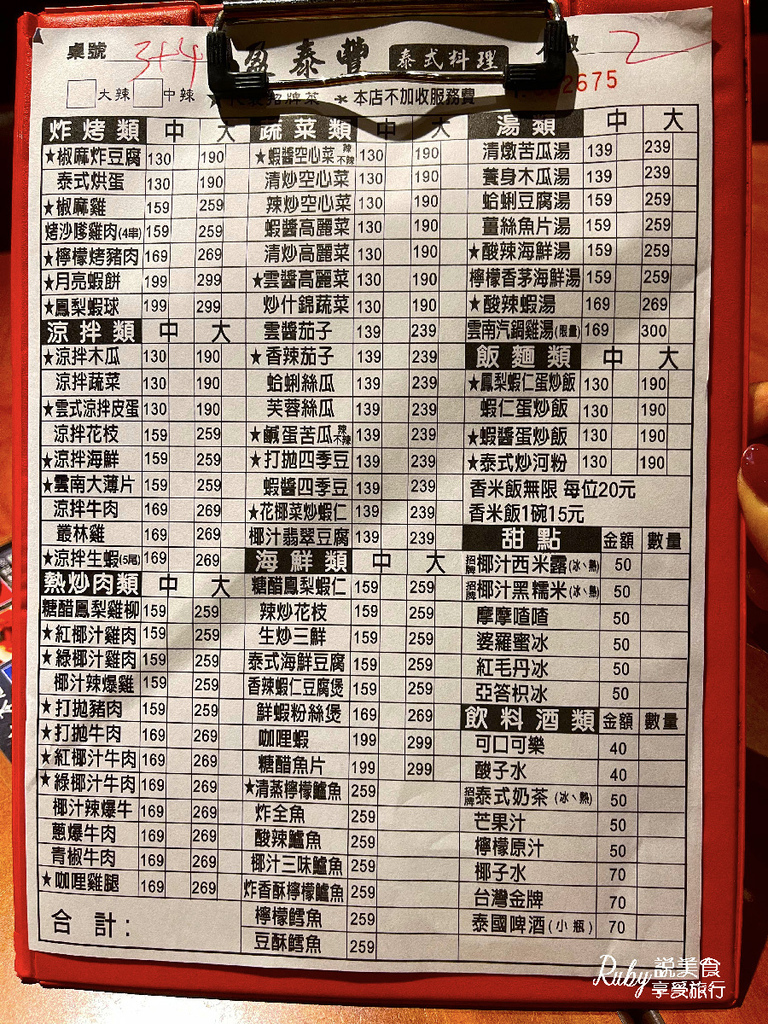 桌號 344 盈泰豐 泰式料理 數 2
大辣 中辣 招牌菜 *本店不加收服務費 2675
炸烤類 中 大
★椒麻炸豆腐 130 190
泰式烘蛋 130 190
★椒麻雞 159 259
烤沙嗲雞肉(4串) 159 259
★檸檬烤豬肉 169 269
★月亮蝦餅 199 299
★鳳梨蝦球 199 299
涼拌類 中 大
★涼拌木瓜 130 190
涼拌蔬菜 130 190
★雲式涼拌皮蛋 130 190
涼拌花枝 159 259
★涼拌海鮮 159 259
★雲南大薄片 159 259
涼拌牛肉 169 269
叢林雞 169 269
★涼拌生蝦(5尾) 169 269
熱炒肉類 中 大
糖醋鳳梨雞柳 159 259
★紅椰汁雞肉 159 259
★綠椰汁雞肉 159 259
椰汁辣爆雞 159 259
★打拋豬肉 159 259
★打拋牛肉 169 269
★紅椰汁牛肉 169 269
★綠椰汁牛肉 169 269
椰汁辣爆牛 169 269
蔥爆牛肉 169 269
青椒牛肉 169 269
★咖哩雞腿 169 269
合計:
蔬菜類 中 大
★蝦醬空心菜 辣 不辣 130 190
清炒空心菜 130 190
辣炒空心菜 130 190
蝦醬高麗菜 130 190
清炒高麗菜 130 190
★雲醬高麗菜 130 190
炒什錦蔬菜 130 190
雲醬茄子 139 239
★香辣茄子 139 239
蛤蜊絲瓜 139 239
芙蓉絲瓜 139 239
★鹹蛋苦瓜 辣 不辣 139 239
★打拋四季豆 139 239
蝦醬四季豆 139 239
★花椰菜炒蝦仁 139 239
椰汁翡翠豆腐 139 239
海鮮類 中 大
糖醋鳳梨蝦仁 159 259
辣炒花枝 159 259
生炒三鮮 159 259
泰式海鮮豆腐 159 259
香辣蝦仁豆腐煲 159 259
鮮蝦粉絲煲 169 269
咖哩蝦 199 299
糖醋魚片 199 299
★清蒸檸檬鱸魚 259
炸全魚 259
酸辣鱸魚 259
椰汁三味鱸魚 259
炸香酥檸檬鱸魚 259
檸檬鱈魚 259
豆酥鱈魚 259
湯類 中 大
清燉苦瓜湯 139 239
養身木瓜湯 139 239
蛤蜊豆腐湯 159 259
薑絲魚片湯 159 259
★酸辣海鮮湯 159 259
檸檬香茅海鮮湯 159 259
★酸辣蝦湯 169 269
雲南汽鍋雞湯(限量) 169 300
飯麵類 中 大
★鳳梨蝦仁蛋炒飯 130 190
蝦仁蛋炒飯 130 190
★蝦醬蛋炒飯 130 190
★泰式炒河粉 130 190
香米飯無限 每位20元
香米飯1碗15元
甜點 金額 數量
招牌椰汁西米露(冰、熱) 50
招牌椰汁黑糯米(冰、熱) 50
摩摩喳喳 50
婆羅蜜冰 50
紅毛丹冰 50
亞答枳冰 50
飲料酒類 金額 數量
可口可樂 40
酸子水 40
招牌泰式奶茶(冰、熱) 50
芒果汁 50
檸檬原汁 50
椰子水 70
台灣金牌 70
泰國啤酒(小瓶) 70
Ruby說美食
享受旅行